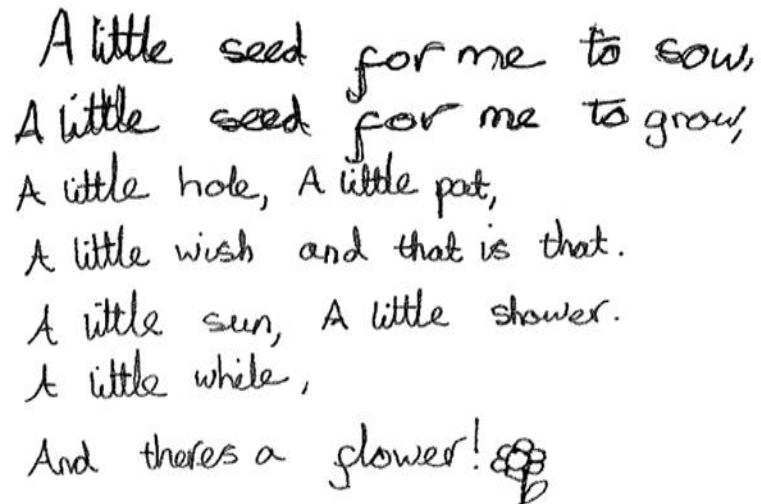 A little seed for me to sow,
A little seed for me to grow,
A little hole, A little pat,
A little wish and that is that.
A little sun, A little shower.
A little while,
And theres a flower!